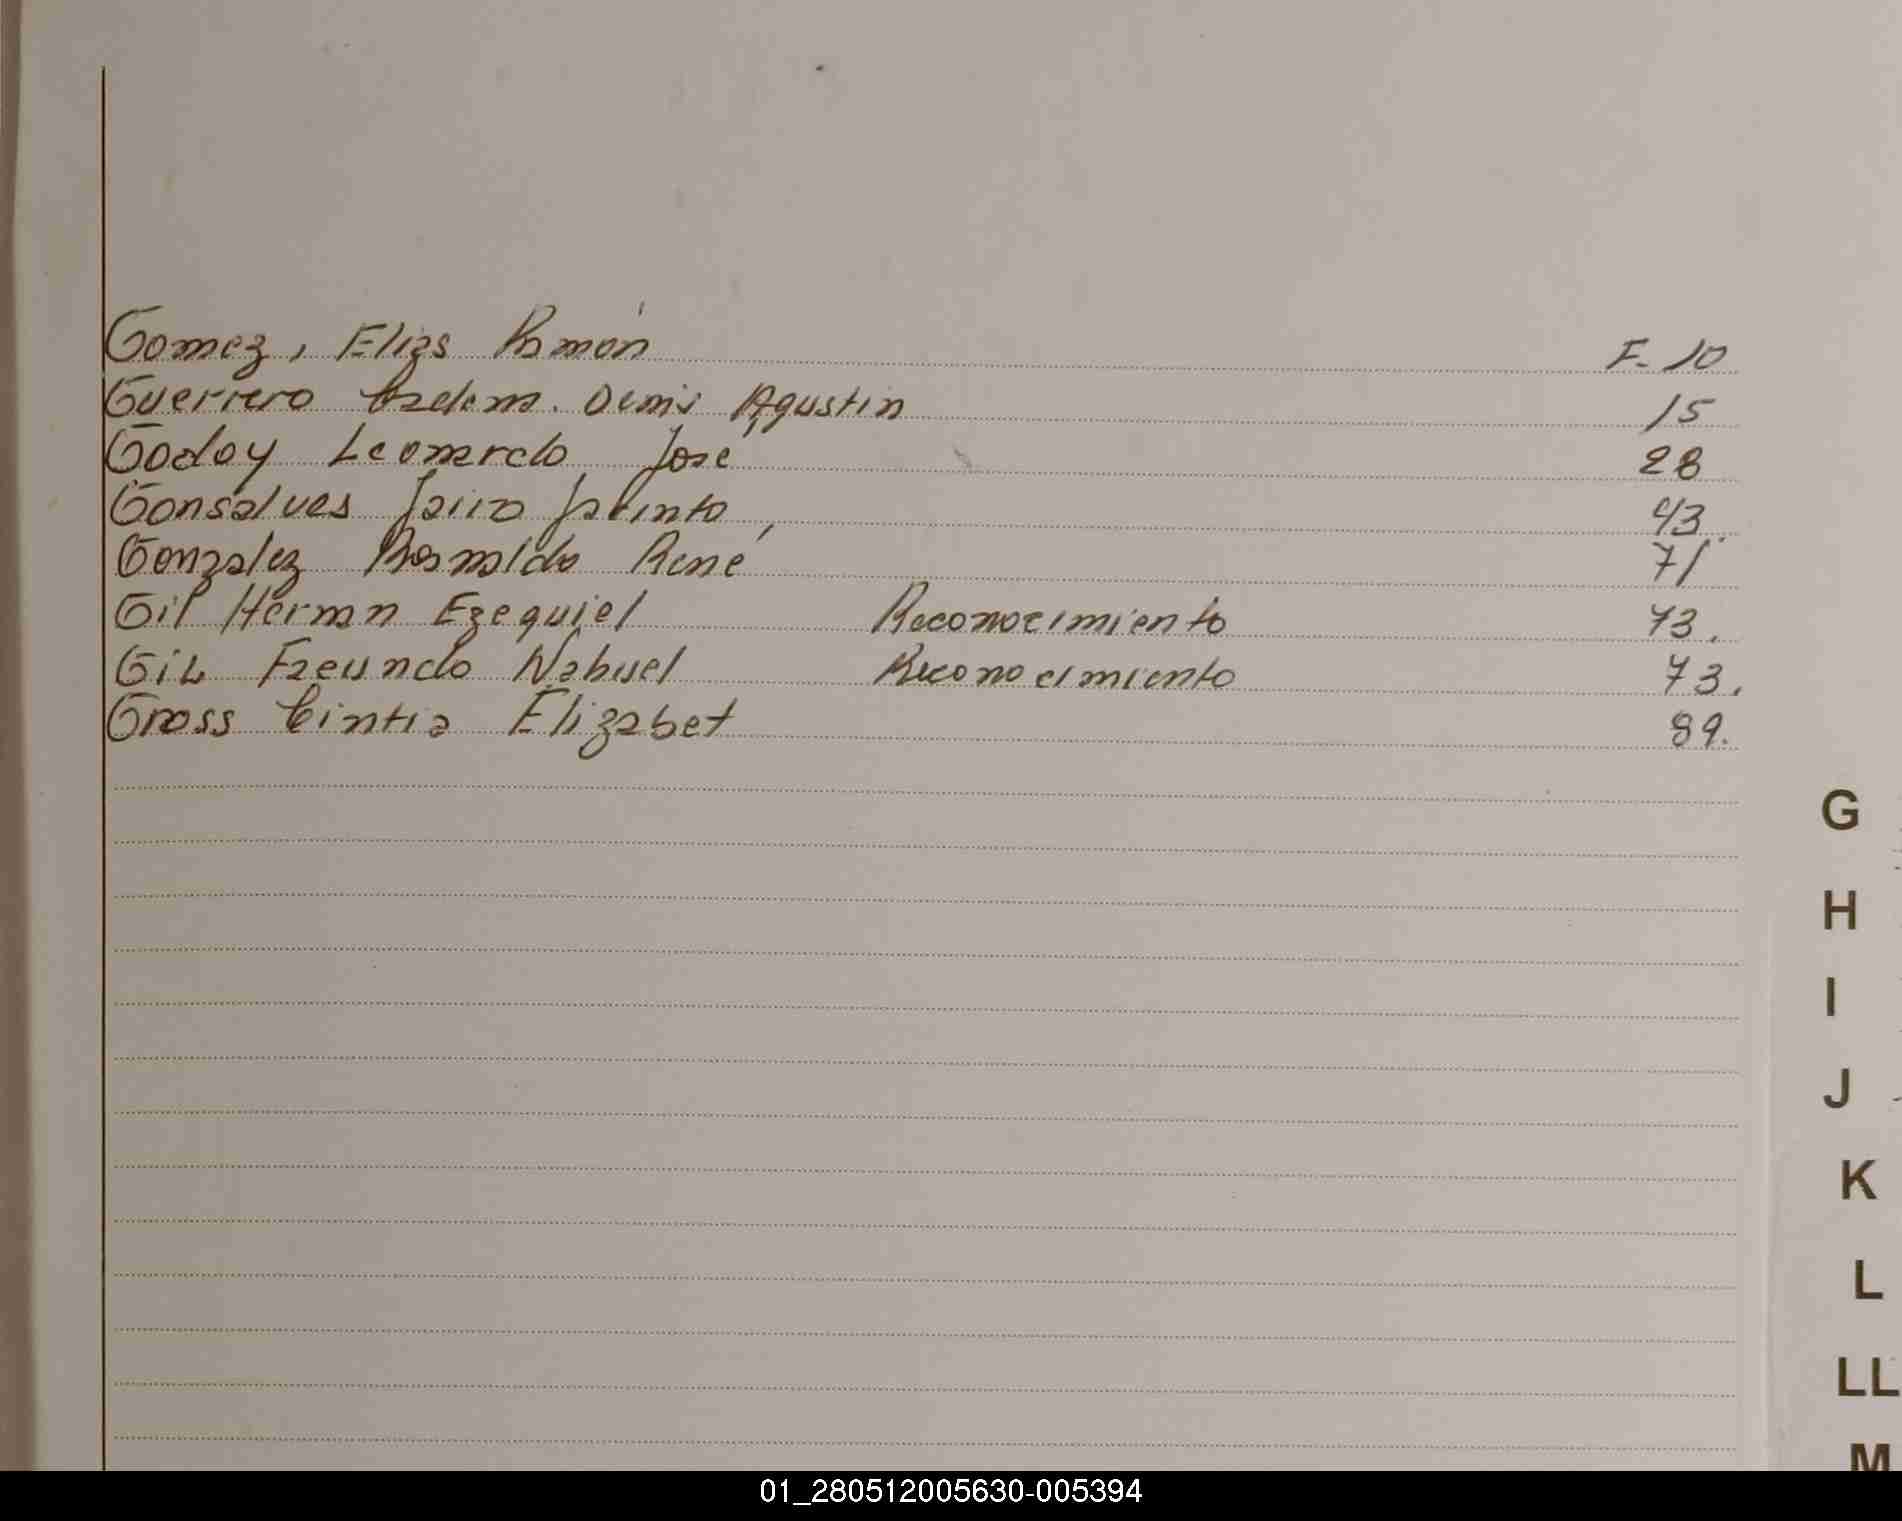 Gomez, Elias Ramón F. 10
Guerrero Denis Agustin 15
Godoy Leonardo José 28
Gonsalves Jairo Jacinto 43.
Gonzalez Ronaldo René 71
Gil Hernan Ezequiel Reconocimiento 73.
Gil Facundo Nahuel Reconocimiento 73.
Gross Cintia Elizabet 89.
G
H
I
J
K
L
LL
M
01_280512005630-005394